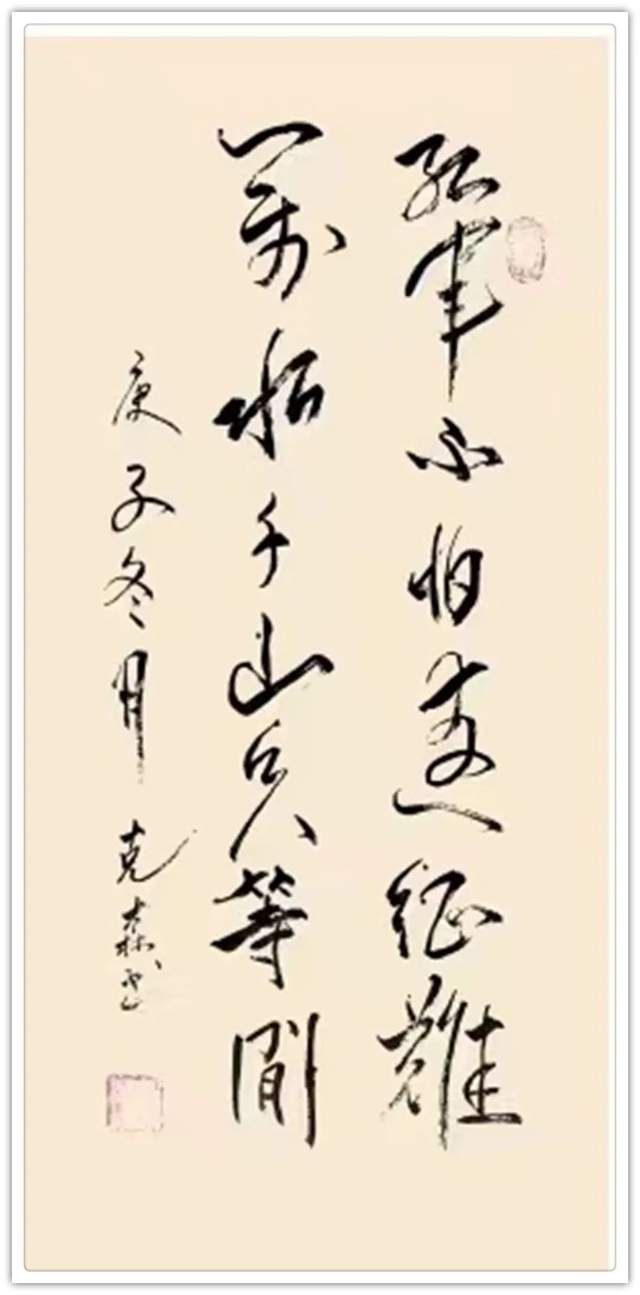 紅軍不怕遠征難
萬水千山只等閒
庚子冬月 克森書